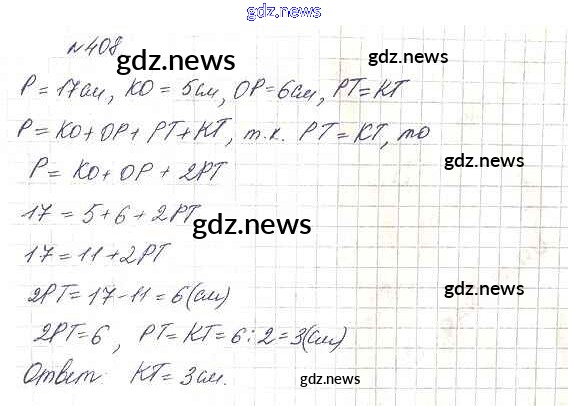 gdz.news
№408
gdz.news
gdz.news
P = 17см, KO = 5см, OP = 6см, PT = KT
P = KO + OP + PT + KT, т.к. PT = KT, то
gdz.news
P = KO + OP + 2PT
17 = 5 + 6 + 2PT
gdz.news
17 = 11 + 2PT
2PT = 17 - 11 = 6(см)
gdz.news
2PT = 6, PT = KT = 6 : 2 = 3(см)
Ответ KT = 3см.
gdz.news